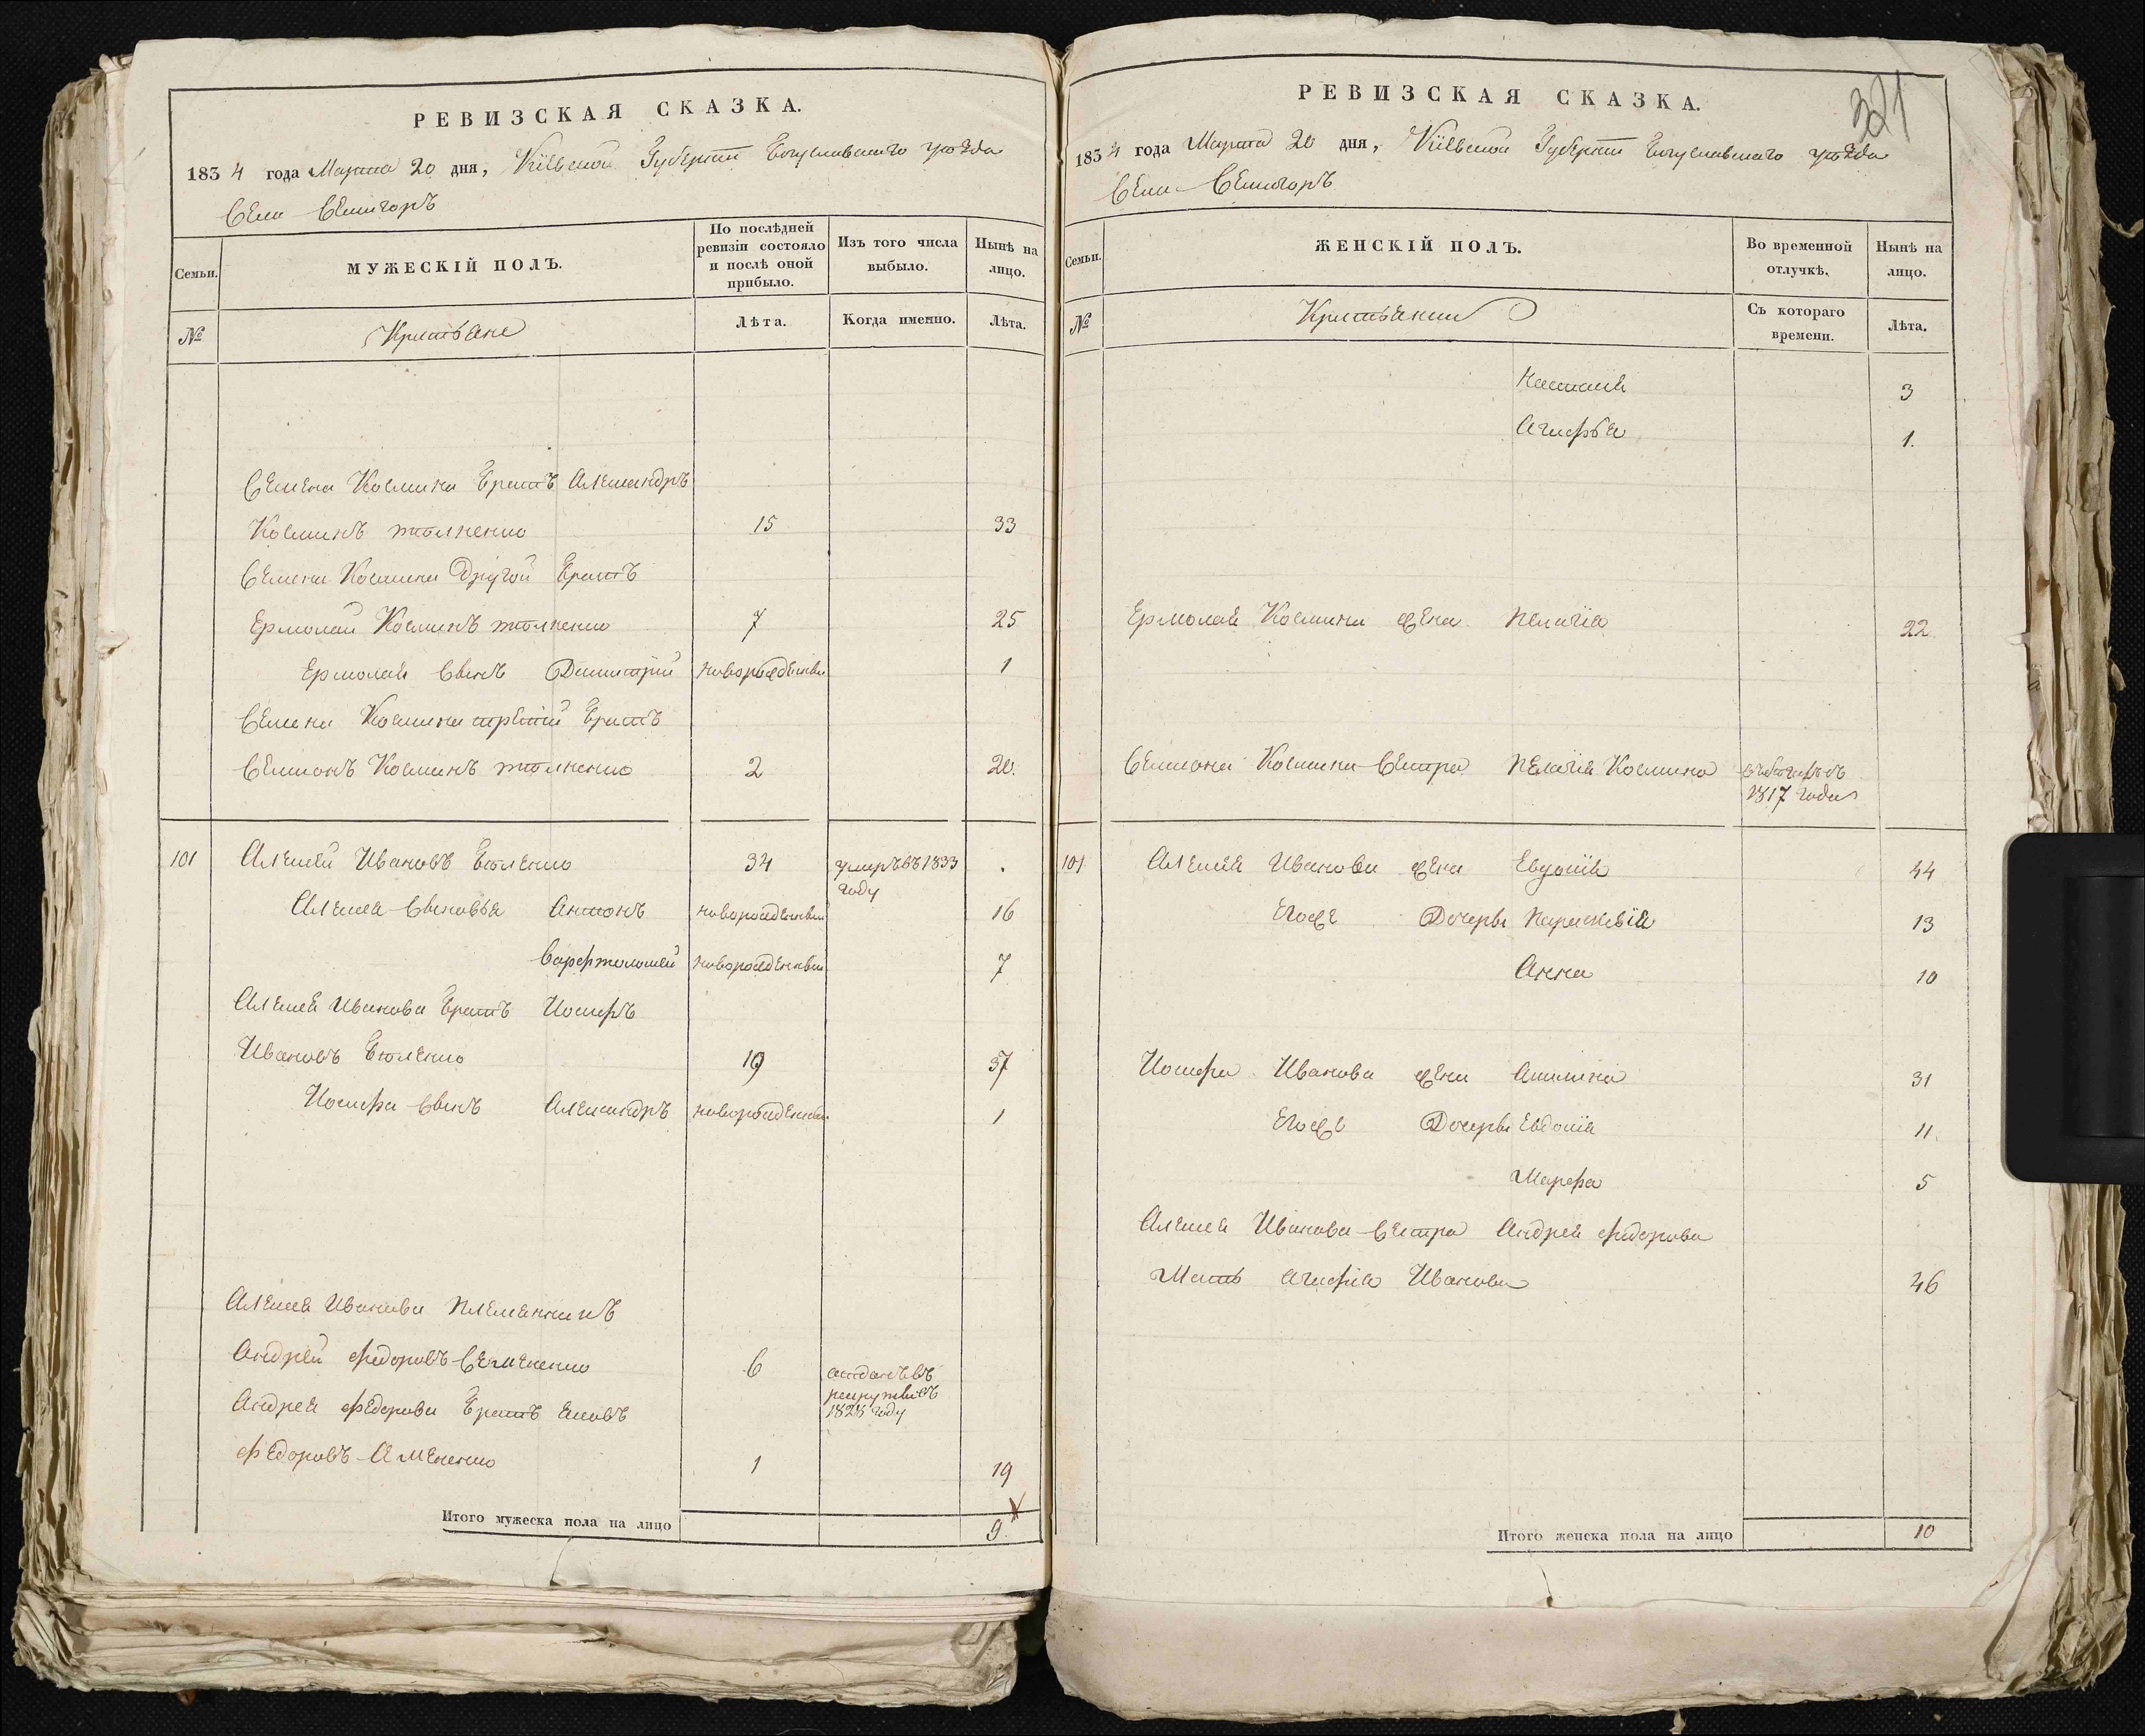 РЕВИЗСКАЯ СКАЗКА.
1834 года Марта 20 дня, Кіевской Губерніи Богуславскаго уѣзда
Села Семигоръ
Семьи.
МУЖЕСКІЙ ПОЛЪ.
По послѣдней ревизіи состояло и послѣ оной прибыло.
Изъ того числа выбыло.
Нынѣ на лицо.
№
Крестьяне
Лѣта.
Когда именно.
Лѣта.
Семена Космина Братъ Александръ
Косминъ 15 33
Семена Космина Другой Братъ
Ермолай Косминъ 7 25
Ермолая Сынъ Димитрій новорожденный 1
Семена Космина третій Братъ
Семионъ Косминъ 2 20.
101 Алексей Ивановъ Бойленко 34 умеръ въ 1833 году
Алексея Сыновья Антонъ новорожденный 16
Варфтоломей новорожденный 7
Алексея Иванова Братъ Иосифъ
Ивановъ 19 37
Иосифа Сынъ Александръ новорожденный 1
Алексея Иванова Племянникъ
Андрей Федоровъ Семененко 6 отданъ въ рекруты въ 1828 году
Андрея Федорова Братъ Яковъ
Федоровъ Семененко 1 19
Итого мужеска пола на лицо 9
РЕВИЗСКАЯ СКАЗКА.
321
1834 года Марта 20 дня, Кіевской Губерніи Богуславскаго уѣзда
Села Семигоръ
Семьи.
ЖЕНСКІЙ ПОЛЪ.
Во временной отлучкѣ.
Нынѣ на лицо.
№
Крестьянки
Съ котораго времени.
Лѣта.
Наталія 3
Агафья 1.
Ермолая Космина жена Пелагія 22
Семиона Космина Сестра Пелагія Космина въ бегахъ съ 1817 года
101 Алексея Иванова жена Евдокія 44
Егоже Дочеры Параскевія 13
Анна 10
Иосифа Иванова жена Акилина 31
Егоже Дочеры Евдокія 11.
Марфа 5
Алексея Иванова Сестра Андрея Федорова
Мать Агафія Иванова 46
Итого женска пола на лицо 10